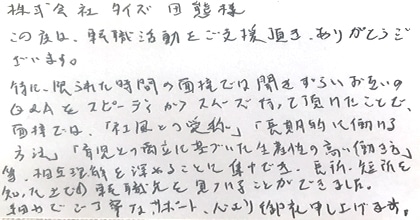 株式会社 タイズ 団態様
この度は、転職活動をご支援頂き、ありがとうご
ざいます。
特に、限られた時間の面接では聞きずらいお互いの
Q&Aをスピーディかつスムーズ行って頂けたことで、
面接では、「社風との愛称」「長期的に働ける
方法」「育児との両立に基づいた生産性の高い働き方」
等、相互理解を深めることに集中でき、長所・短所を
知った上での転職先を見つけることができました。
細やかでご丁寧なサポート、心より御礼申し上げます。